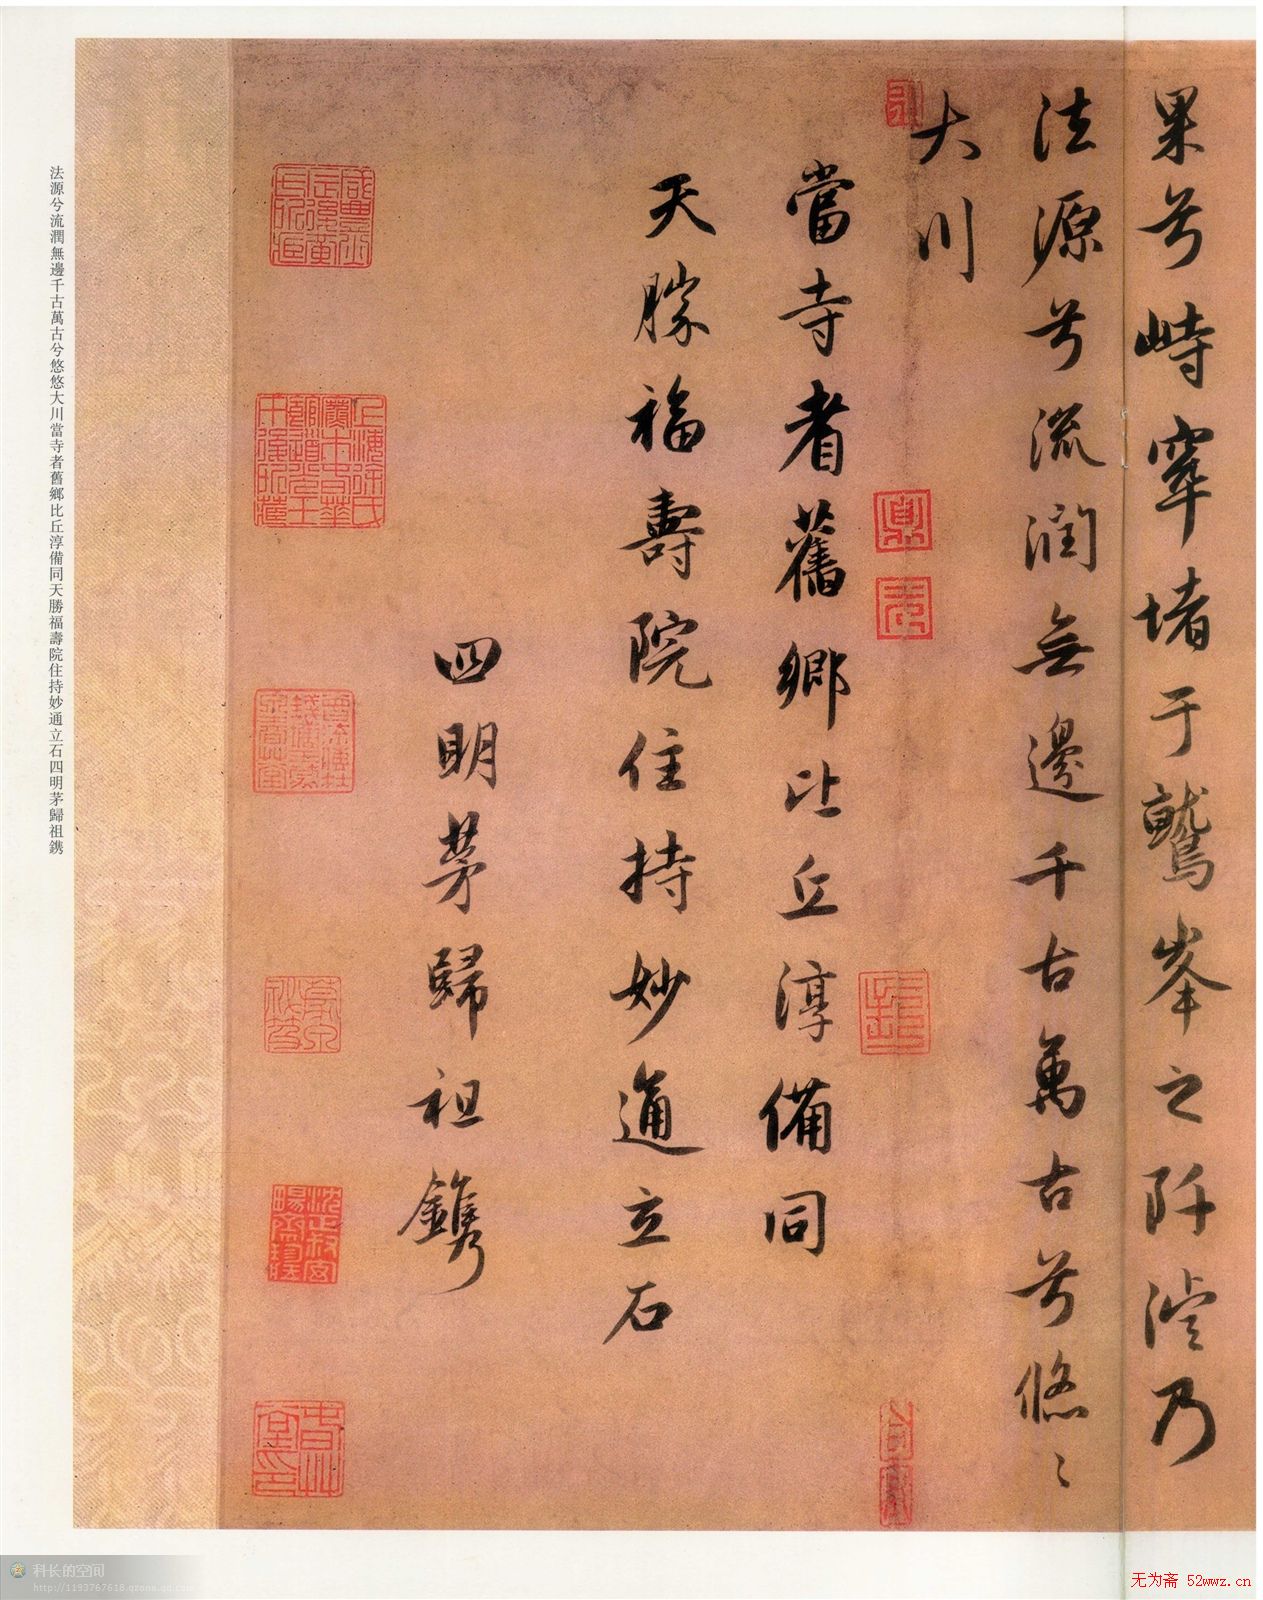 果兮峙窣堵于鷲峯之阡濬乃
法源兮流潤無邊千古萬古兮悠〻
大川
當寺者舊鄉比丘淳備同
天勝福壽院住持妙通立石
四明茅歸祖鐫
法源兮流潤無邊千古萬古兮悠悠大川當寺者舊鄉比丘淳備同天勝福壽院住持妙通立石四明茅歸祖鐫
科长的空间
http://1193767618.qzone.qq.com
无为斋 52wwz.cn